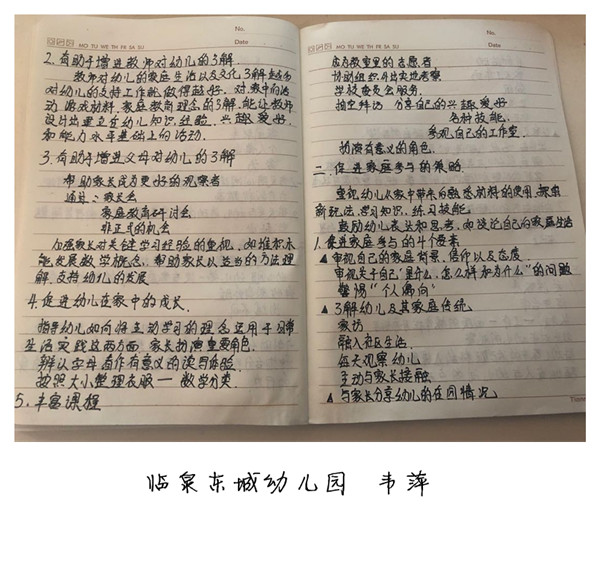 No.
MO TU WE TH FR SA SU
Date
2.有助于增进教师对幼儿的了解.
教师对幼儿的家庭生活以及文化了解越多
对幼儿的支持工作就做得越好.对家中的活
动.游戏材料.家庭教育理念的了解.能让教师
设计出建立在幼儿知识.经验.兴趣爱好.
和能力水平基础上的活动.
3.有助于增进父母对幼儿的了解
帮助家长成为更好的观察者
通过:家长会
家庭教育研讨会
非正式的机会
加强家长对关键学习经验的重视.如堆积木
能发展数学概念.帮助家长以适当的方法理
解.支持幼儿的发展
4.促进幼儿在家中的成长.
指导幼儿如何将主动学习的理念运用于日常
生活实践这两方面 家长扮演重要角色.
辨认字母看作有意义的读写体验.
按照大小整理衣服——数学分类.
5.丰富课程
No.
MO TU WE TH FR SA SU
Date
成为教室里的志愿者
协助组织外出实地考察
学校委员会服务.
抽空拜访 分享自己的兴趣爱好
各种技能.
参观自己的工作室.
扮演有意义的角色.
二.促进家庭参与的策略.
重视幼儿从家中带来的熟悉材料的使用.探索
新玩法.学习知识.练习技能.
鼓励幼儿表达和思考.如谈论自己的家庭生活
1.促进家庭参与的4个要素
▲审视自己的家庭背景.信仰以及态度.
审视关于自己"是什么.怎么样和为什么"的问题
警惕"个人偏向"
▲了解幼儿及其家庭传统.
家访
融入社区生活.
每天观察幼儿
主动与家长接触
▲与家长分享幼儿的在园情况.
临泉东城幼儿园 韦萍